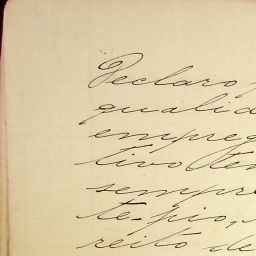 Declaro p
qualid
empreg
tivo ten
sempre
te-pio,
reito de